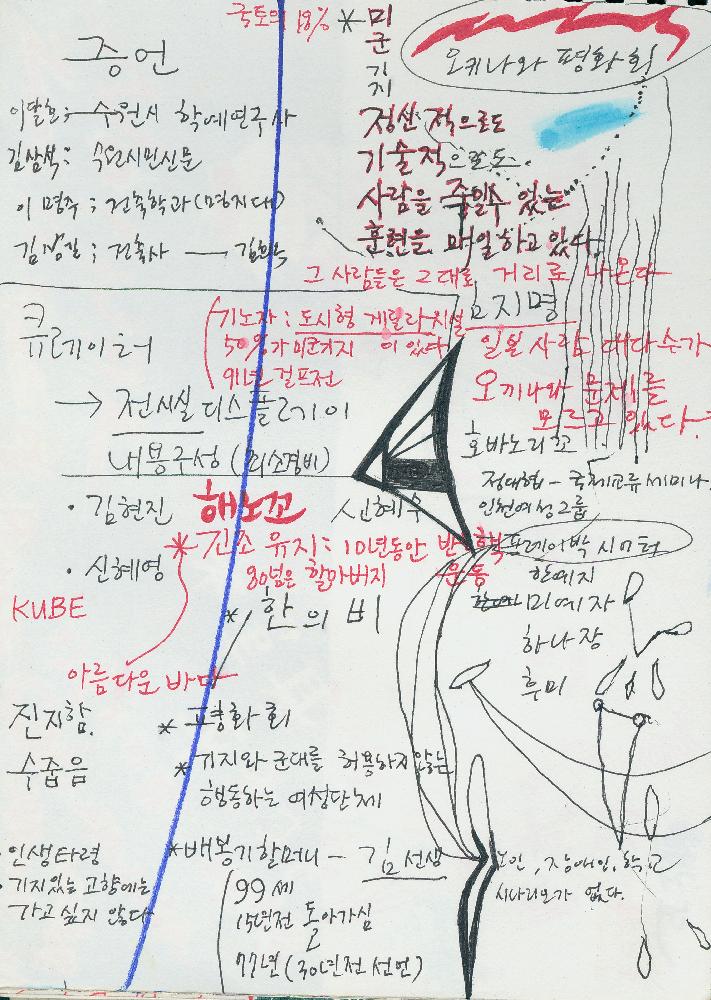 국토의 18% * 미군기지
오키나와 평화회
증언
이달호; 수원시 학예연구사
김삼석: 수원시민신문
이명주; 건축학과(명지대)
건축사
정신적으로도
기술적으로도
사람을 죽일수 있는
훈련을 매일하고 있다.
그 사람들은 그대로 거리로 나온다
큐레이터
→ 전시실 디스플레이
내용구성 (최소경비)
기노자: 도시형 게릴라 시설
50%가 미군기지 이 있다
91년 걸프전
고지명
일본 사람 대다수가
오끼나와 문제를
모르고 있다.
· 김현진
· 신혜영
헤노꼬
신혜수
정대협 - 국제교류 세미나
인천여성그룹
* 긴조 유지: 10년동안 반대
80넘은 할아버지
운동
KUBE
* 한의 비
아름다운 바다
한예지
미예자
하나장
후미
진지함.
수줍음
* 평화회
* 기지와 군대를 허용하지 않는
행동하는 여성단체
인생타령
· 기지있는 고향에는
가고 싶지 않다
* 배봉기할머니 - 김선생
99세
15년전 돌아가심
77년 (30년전 선언)
노인, 장애인, 학교
시나리오가 없다.